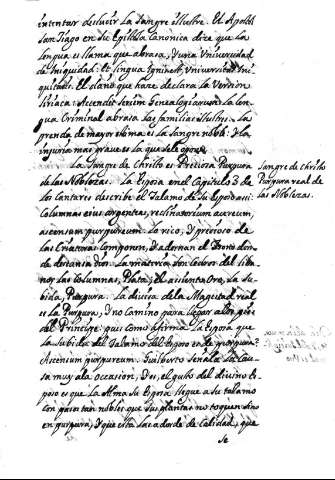 intentar deslucir La Sangre illustre. El Apostol
San Tiago en su Epistola Canonica dice que la
lengua es llama que abrasa, y una Universidad
de iniquidad: Et lingua ignis est, Universitas Ini-
quitatis. El daño que hace declara La Version
Siriaca: Accendit seriem Genealogiarum La len-
gua Criminal abrasa las familias illustres. La
prenda de mayor estima es la Sangre noble: y la
injuria mas grave es la que se le opone.
La Sangre de Christo es Preciosa Purpura
de las Noblezas. La Esposa en el Capitulo 3 de
los Cantares describe el Talamo de Su Esposo assi:
Columnas eius argenteas, reclinatorium aureum,
ascensum purpureum. Lo rico, y precioso de
las Criaturas Componen, y adornan el Trono don-
de descansa Dios. La materia son Cedros del Liba-
no; las Columnas, Plata; el assiento Oro, La Su-
bida, Purpura. La divisa de la Magestad real
es la Purpura, y no camino para llegar a los pies
del Principe. pues como afirma La Esposa que
la Subida del Talamo del Esposo es de purpura?
Ascensum purpureum. Guilberto señala La Cau-
sa muy a la occasion. Dios, el gusto del divino es-
poso es que la Alma su Esposa llegue a su talamo
con pasos tan nobles que sus plantas no toquen sino
en purpura, y que esta sea adorde de Calidad, que
se
Sangre de Christo
Purpura real de
las Noblezas.